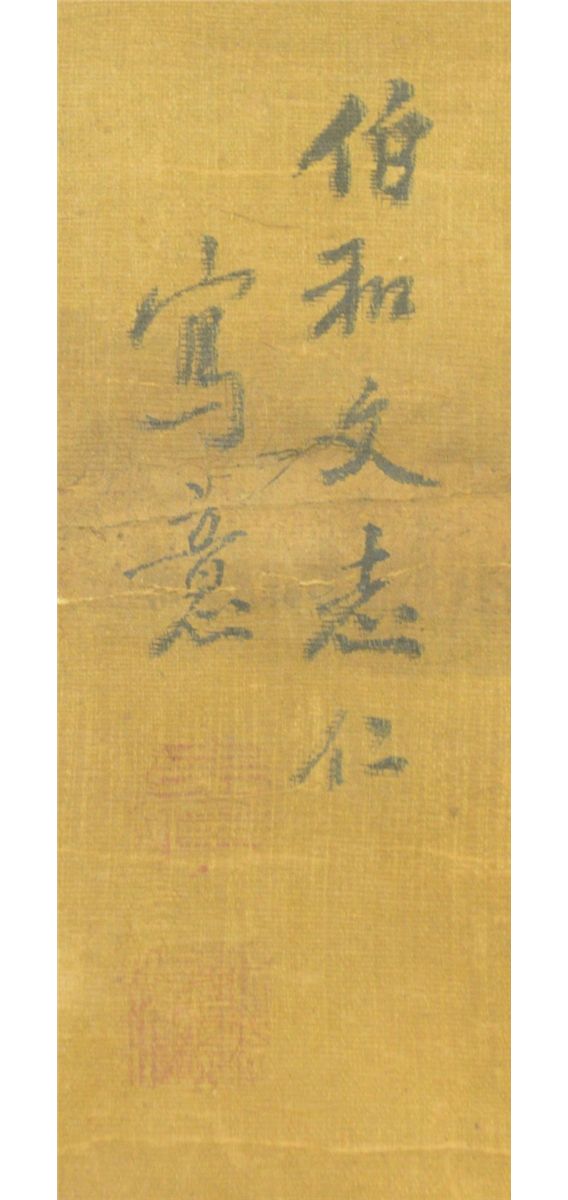 伯和文志仁
寫意